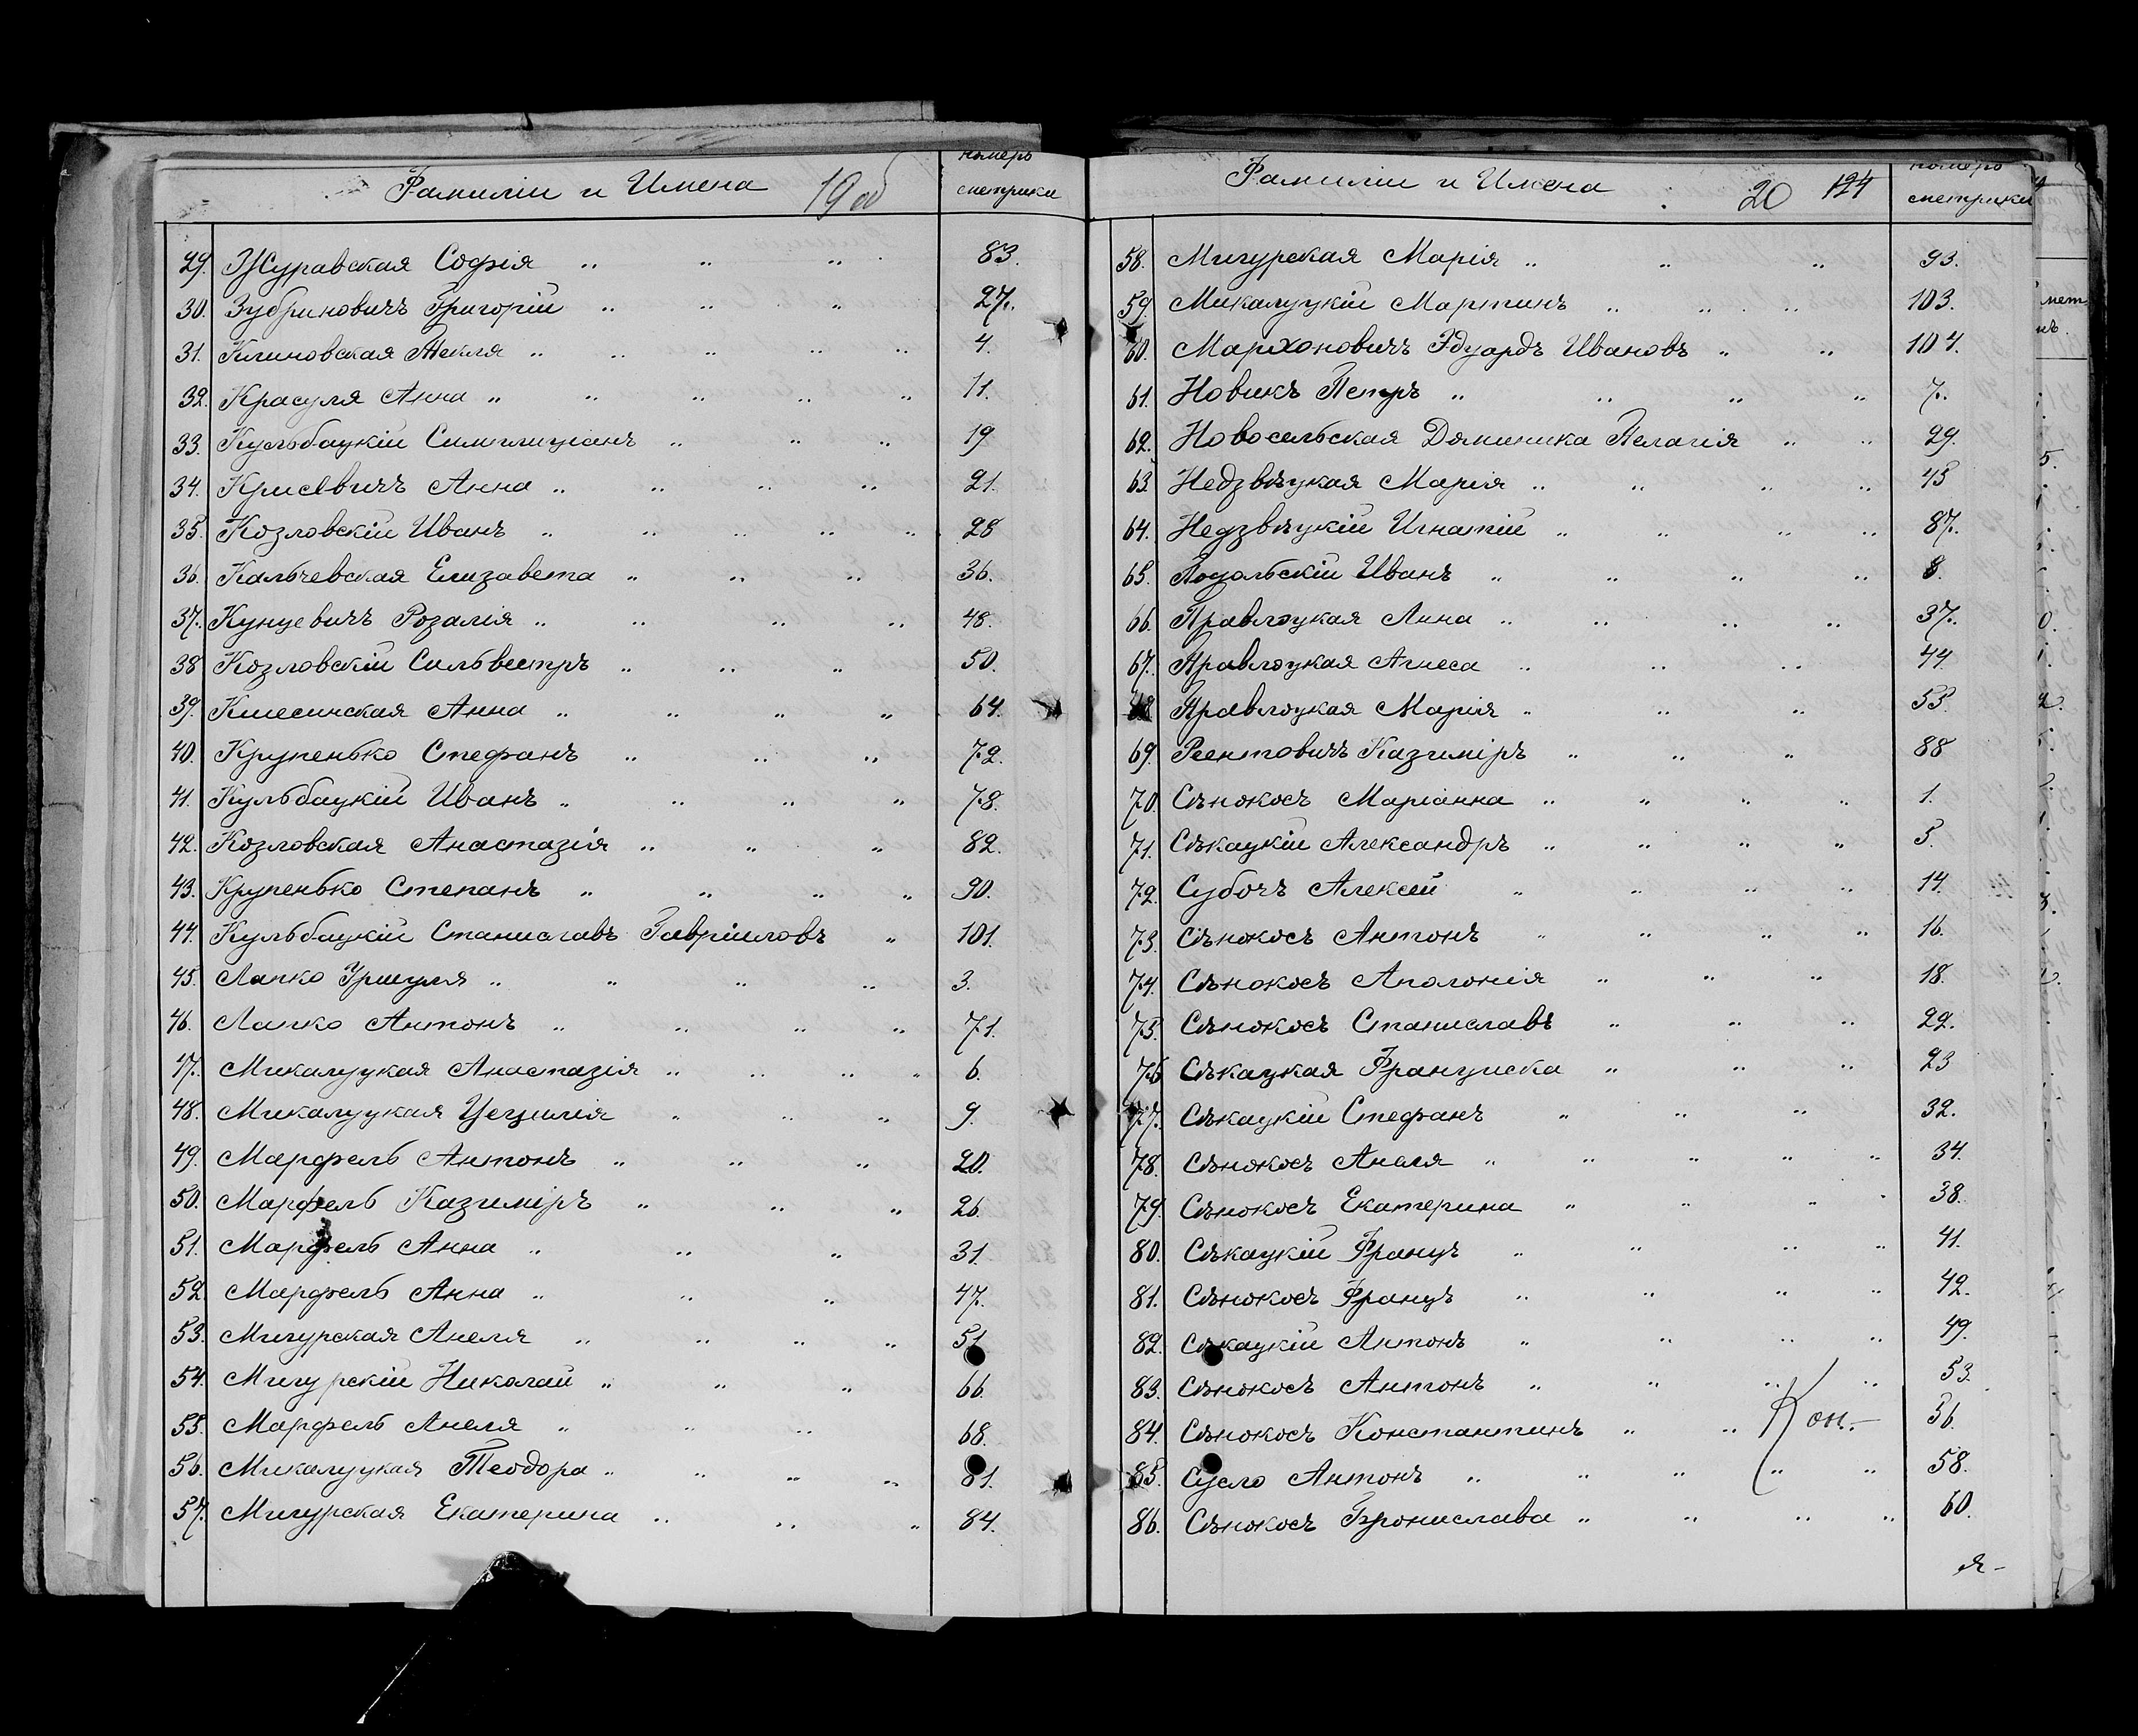 Фамиліи и Имена 19 об номеръ метрики
29. Журавская Софія „ „ „ 83.
30. Зубриновичъ Григорій „ „ „ 27.
31. Климовская Текля „ „ „ „ „ 4.
32. Красуля Анна „ „ „ „ „ 11.
33. Кульбацкій Симплиціанъ „ „ „ 19
34. Крисевичъ Анна „ „ „ „ 21.
35. Козловскій Иванъ „ „ „ „ „ 28
36. Кальчевская Елизавета „ „ „ 36.
37. Кунцевичъ Розалія „ „ „ „ 48.
38 Козловскій Сильвестръ „ „ „ 50.
39. Анна „ „ „ „ 64.
40. Крупенько Стефанъ „ „ „ 72.
41. Кульбацкій Иванъ „ „ „ „ 78.
42. Козловская Анастазія „ „ „ 82.
43. Крупенько Степанъ „ „ „ „ 90.
44. Кульбацкій Станиславъ Гавріиловъ „ 101.
45. Лапко Уршуля „ „ „ „ 3.
46. Лапко Антонъ „ „ „ „ 71.
47. Микалуцкая Анастазія „ „ „ „ 6.
48. Микалуцкая Цецилія „ „ „ 9.
49. Марфель Антонъ „ „ „ 20.
50. Марфель Казиміръ „ „ „ 26.
51. Марфель Анна „ „ „ 31.
52. Марфель Анна „ „ „ 47.
53. Мигурская Анеля „ „ „ „ 51
54. Мигурскій Николай „ „ „ 66.
55. Марфель Анеля „ „ „ 68.
56. Микалуцкая Теодора „ „ „ „ 81.
57. Мигурская Екатерина „ „ „ 84.
Фамиліи и Имена 20 124 номеръ метрики
58. Мигурская Марія „ „ „ 93.
59. Микалуцкій Мартинъ „ „ „ 103.
60. Мархоновичъ Эдуардъ Ивановъ „ „ 104.
61. Новикъ Петръ „ „ „ „ 7.
62. Новосельская Доминика Пелагія „ „ 29.
63. Недзвѣцкая Марія „ „ „ „ 45
64. Недзвѣцкій Игнатій „ „ „ „ 87.
65. Подольскій Иванъ „ „ „ „ 8.
66. Правлоцкая Анна „ „ „ „ 37.
67. Правлоцкая Агнеса „ „ „ 44.
68 Правлоцкая Марія „ „ „ 55.
69. Реентовичъ Казиміръ „ „ „ 88
70. Сѣнокосъ Маріанна „ „ „ „ 1.
71. Сѣкацкій Александръ „ „ „ „ 5.
72. Субочъ Алексей „ „ „ „ 14.
73. Сѣнокосъ Антонъ „ „ „ „ 16.
74. Сѣнокосъ Аполонія „ „ „ 18.
75. Сѣнокосъ Станиславъ „ „ „ 22.
76 Сѣкацкая Франциска „ „ „ 23
77. Сѣкацкій Стефанъ „ „ „ 32.
78. Сѣнокосъ Анеля „ „ „ „ „ 34.
79. Сѣнокосъ Екатерина „ „ „ „ 38.
80. Сѣкацкій Францъ „ „ „ „ 41.
81. Сѣнокосъ Францъ „ „ „ „ 42.
82. Сѣкацкій Антонъ „ „ „ „ 49.
83. Сѣнокосъ Антонъ „ „ „ „ 53.
84. Сѣнокосъ Константинъ „ „ Кон.- 56.
85. Сусло Антонъ „ „ „ „ „ 58.
86. Сѣнокосъ Брониславa „ „ „ „ 60.